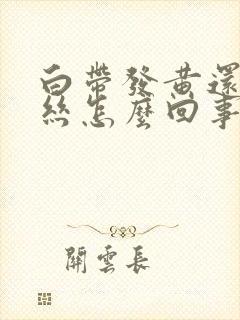 白帶發黃還
絲怎麼回事
關雲長